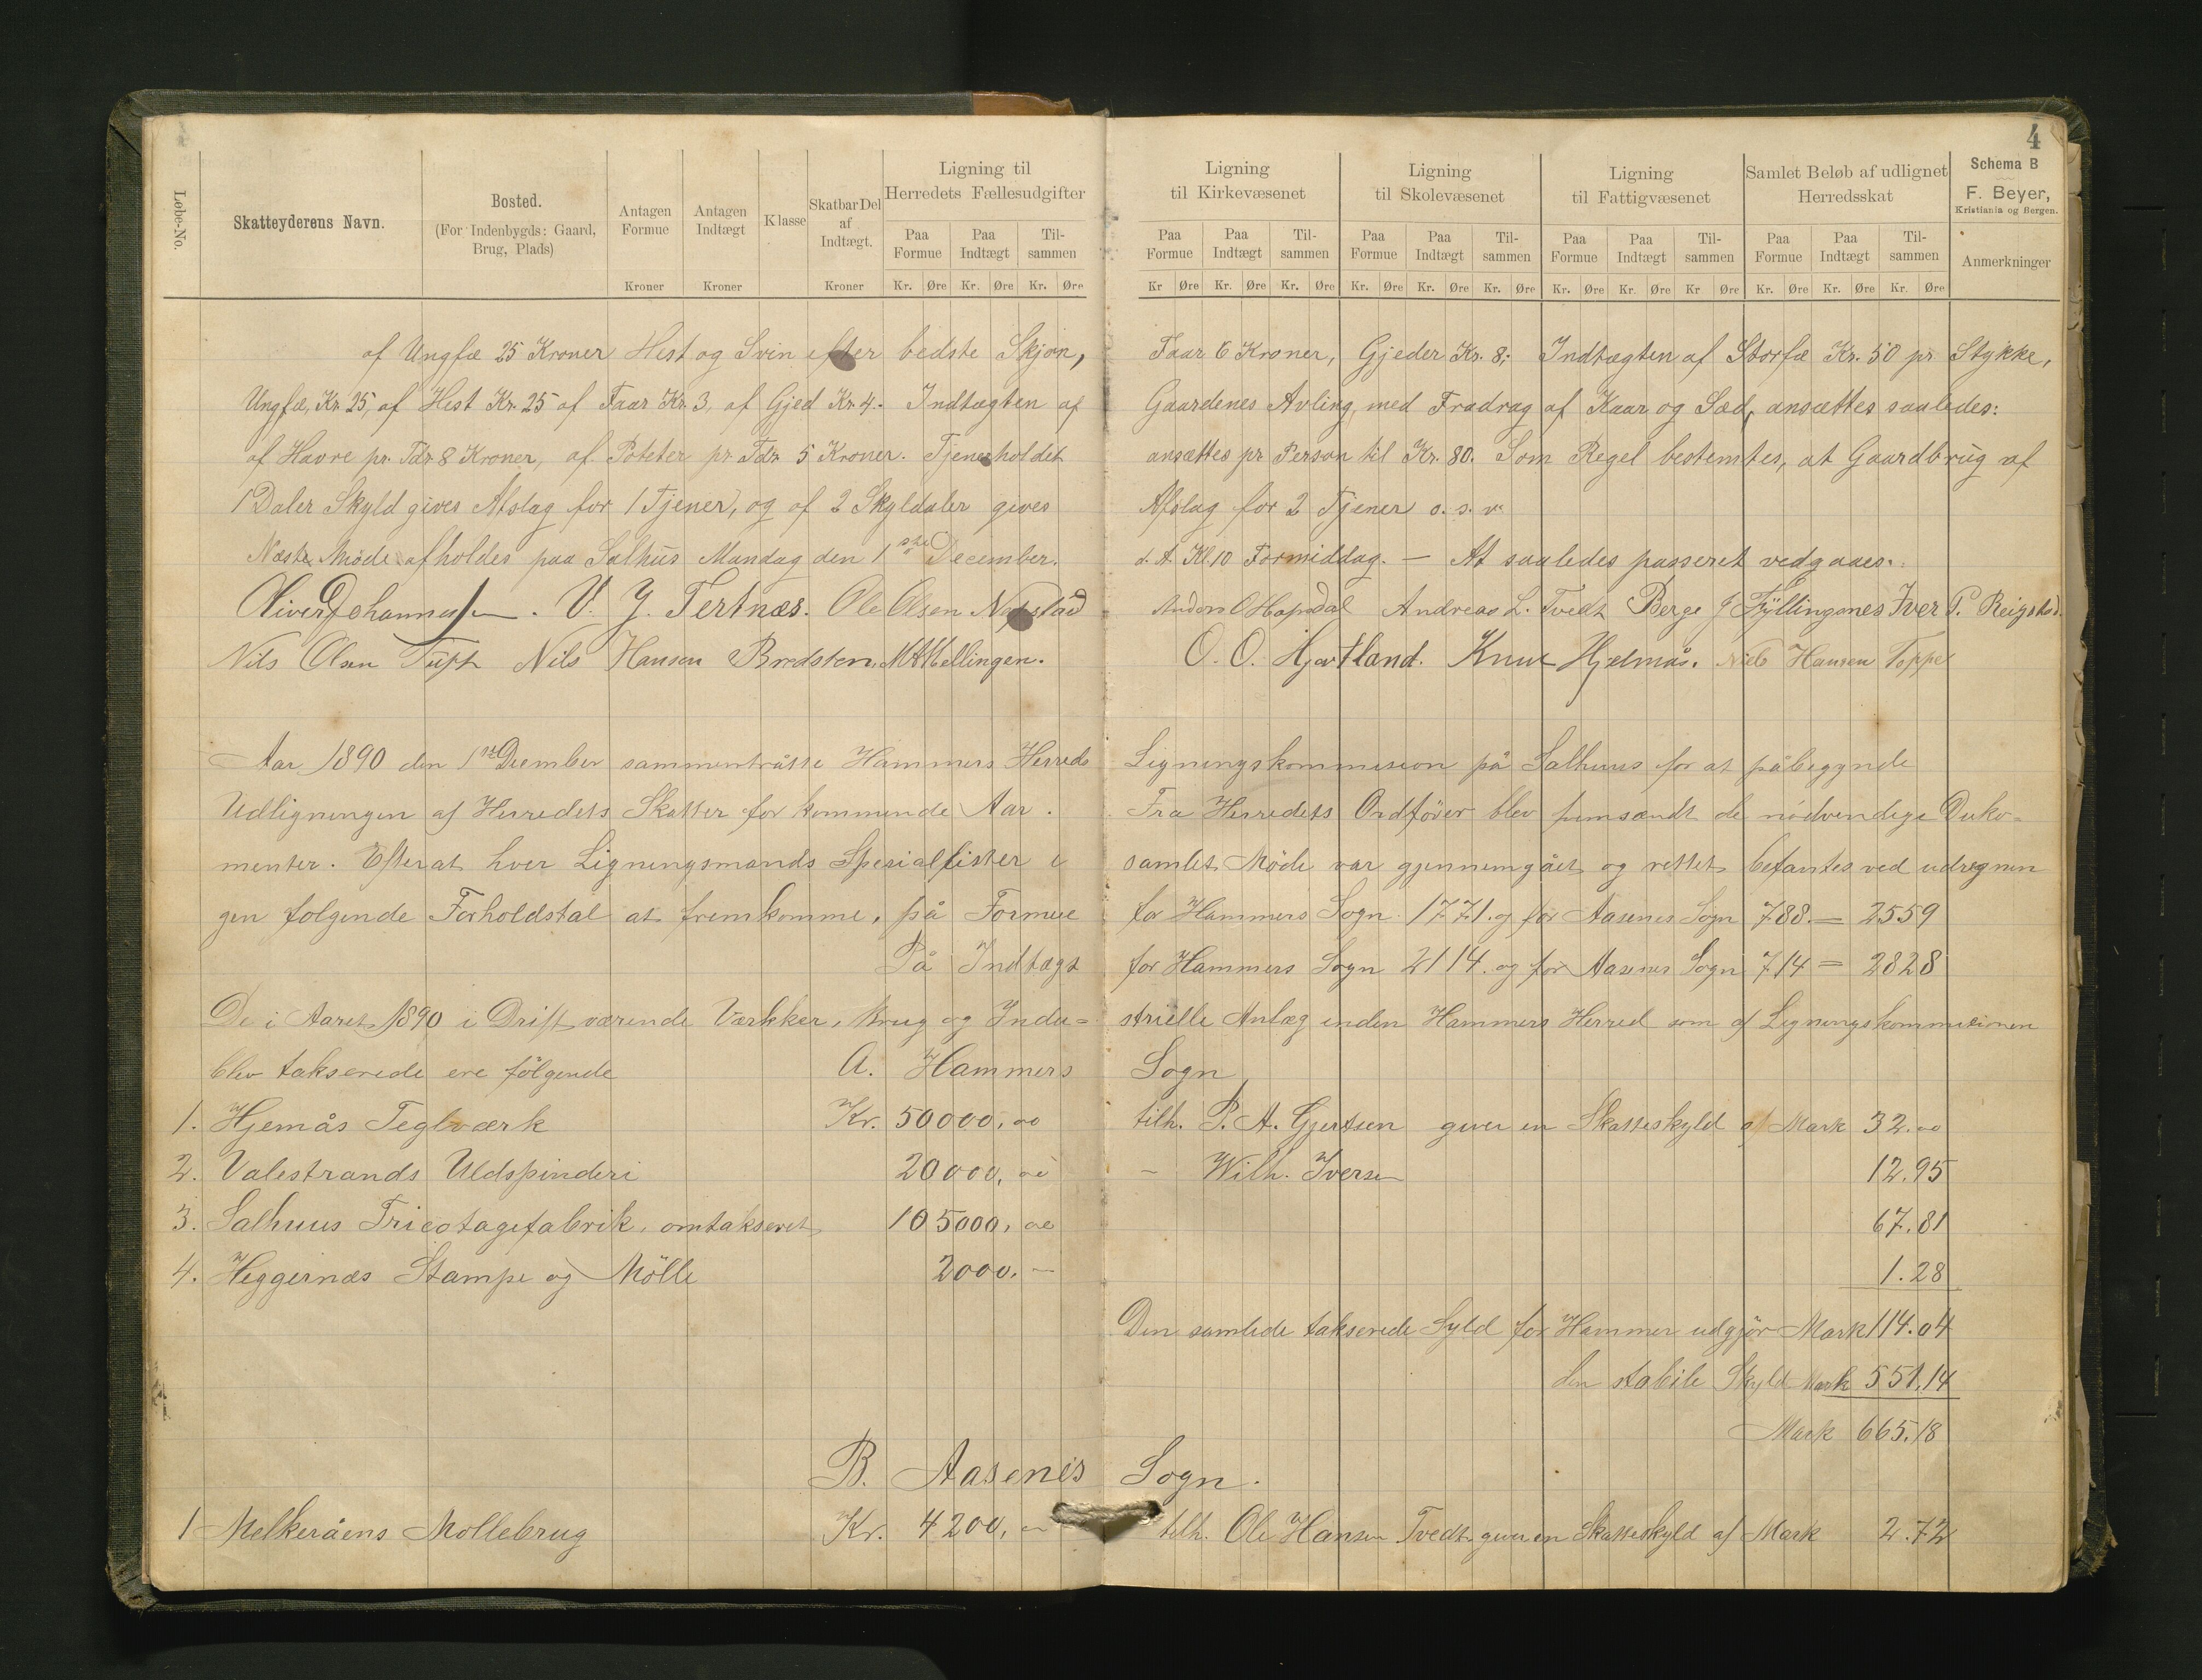 4
Løbe-No.
Skatteyderens Navn.
Bosted.
(For Indenbygds: Gaard,
Brug, Plads)
Antagen
Formue
Kroner
Antagen
Indtægt
Kroner
Klasse
Skatbar Del
af
Indtægt.
Kroner
Ligning til
Herredets Fællesudgifter
Paa Formue
Paa Indtægt
Til-sammen
Kr. Øre Kr. Øre Kr. Øre
Ligning
til Kirkevæsenet
Paa Formue
Paa Indtægt
Til-sammen
Kr Øre Kr. Øre Kr. Øre
Ligning
til Skolevæsenet
Paa Formue
Paa Indtægt
Til-sammen
Kr. Øre Kr. Øre Kr. Øre
Ligning
til Fattigvæsenet
Paa Formue
Paa Indtægt
Til-sammen
Kr. Øre Kr. Øre Kr Øre
Samlet Beløb af udlignet
Herredsskat
Paa Formue
Paa Indtægt
Til-sammen
Kr. Øre Kr. Øre Kr. Øre
Schema B
F. Beyer,
Kristiania og Bergen.
Anmerkninger
af Ungfæ 25 Kroner Hest og Svin efter bedste Skjøn, Faar 6 Kroner, Gjeder Kr. 8; Indtægten af Storfæ Kr. 50 pr Stykke,
Ungfæ, Kr. 25, af Hest Kr. 25 af Faar Kr. 3, af Gjed Kr. 4. Indtægten af Gaardenes Avling, med Fradrag af Kaar og Sæd, ansættes saaledes:
af Havre pr. Tdr 8 Kroner, af Poteter pr Tdr 5 Kroner. Tjenerholdet ansættes pr Person til Kr. 80. Som Regel bestemtes, at Gaardbrug af
1 Daler Skyld gives Afslag for 1 Tjener, og af 2 Skyldaler gives Afslag for 2 Tjener o. s. v.
Næste Møde afholdes paa Salhus Mandag den 1ste December. d. A. Kl. 10 Formiddag. — At saaledes passeret vedgaaes.
Oliver Johannesen. V. J. Tertnæs. Ole Olsen Anders O Hopsdal Andreas L. Tvedt Berge J Fyllingsnes Iver P. Reigstad.
Nils Olsen Tuft Nils Hansen Bredsten. Mellingen. O. O. Hjortland. Knut Hjelmås. Nils Hansen Toppe
Aar 1890 den 1ste December sammentråtte Hammers Herreds Ligningskommission på Salhuus for at påbegynde
Udligningen af Herredets Skatter for kommende Aar. Fra Herredets Ordfører blev fremsændt de nødvendige Doko-
menter. Efterat hver Ligningsmands Spesiallister i samlet Møde var gjennemgået og rettet befantes ved udregnin
gen følgende Forholdstal at fremkomme, på Formue for Hammers Sogn 1771. og for Aasenes Sogn 788. = 2559
På Indtægt for Hammers Sogn 2114. og for Aasenes Sogn 714 = 2828
De i Aaret 1890 i Drift værende Værkker, Brug og Indu= strielle Anlæg inden Hammers Herred som af Ligningskommisionen
blev takserede ere følgende A. Hammers Sogn
1. Hjemås Teglværk Kr. 50000,00 tilh. P. A. Gjertsen giver en Skatteskyld af Mark 32.00
2. Valestrands Uldspinderi 20000,00 – Wilh. Iversen 12.95
3. Salhuus Tricotagefabrik, omtakseret 105000,00 67.81
4. Heggernæs Stampe og Mølle 2000. — 1.28
Den samlede takserede Syld for Hammer udgjør Mark 114.04
den stabile Skyld Mark 551,14
Mark 665.18
B. Aasenes Sogn.
1 Melkeråens Mollebrug Kr. 4200, – tilh. Ole Hansen Tvedt giver en Skatteskyld af Mark 2.72